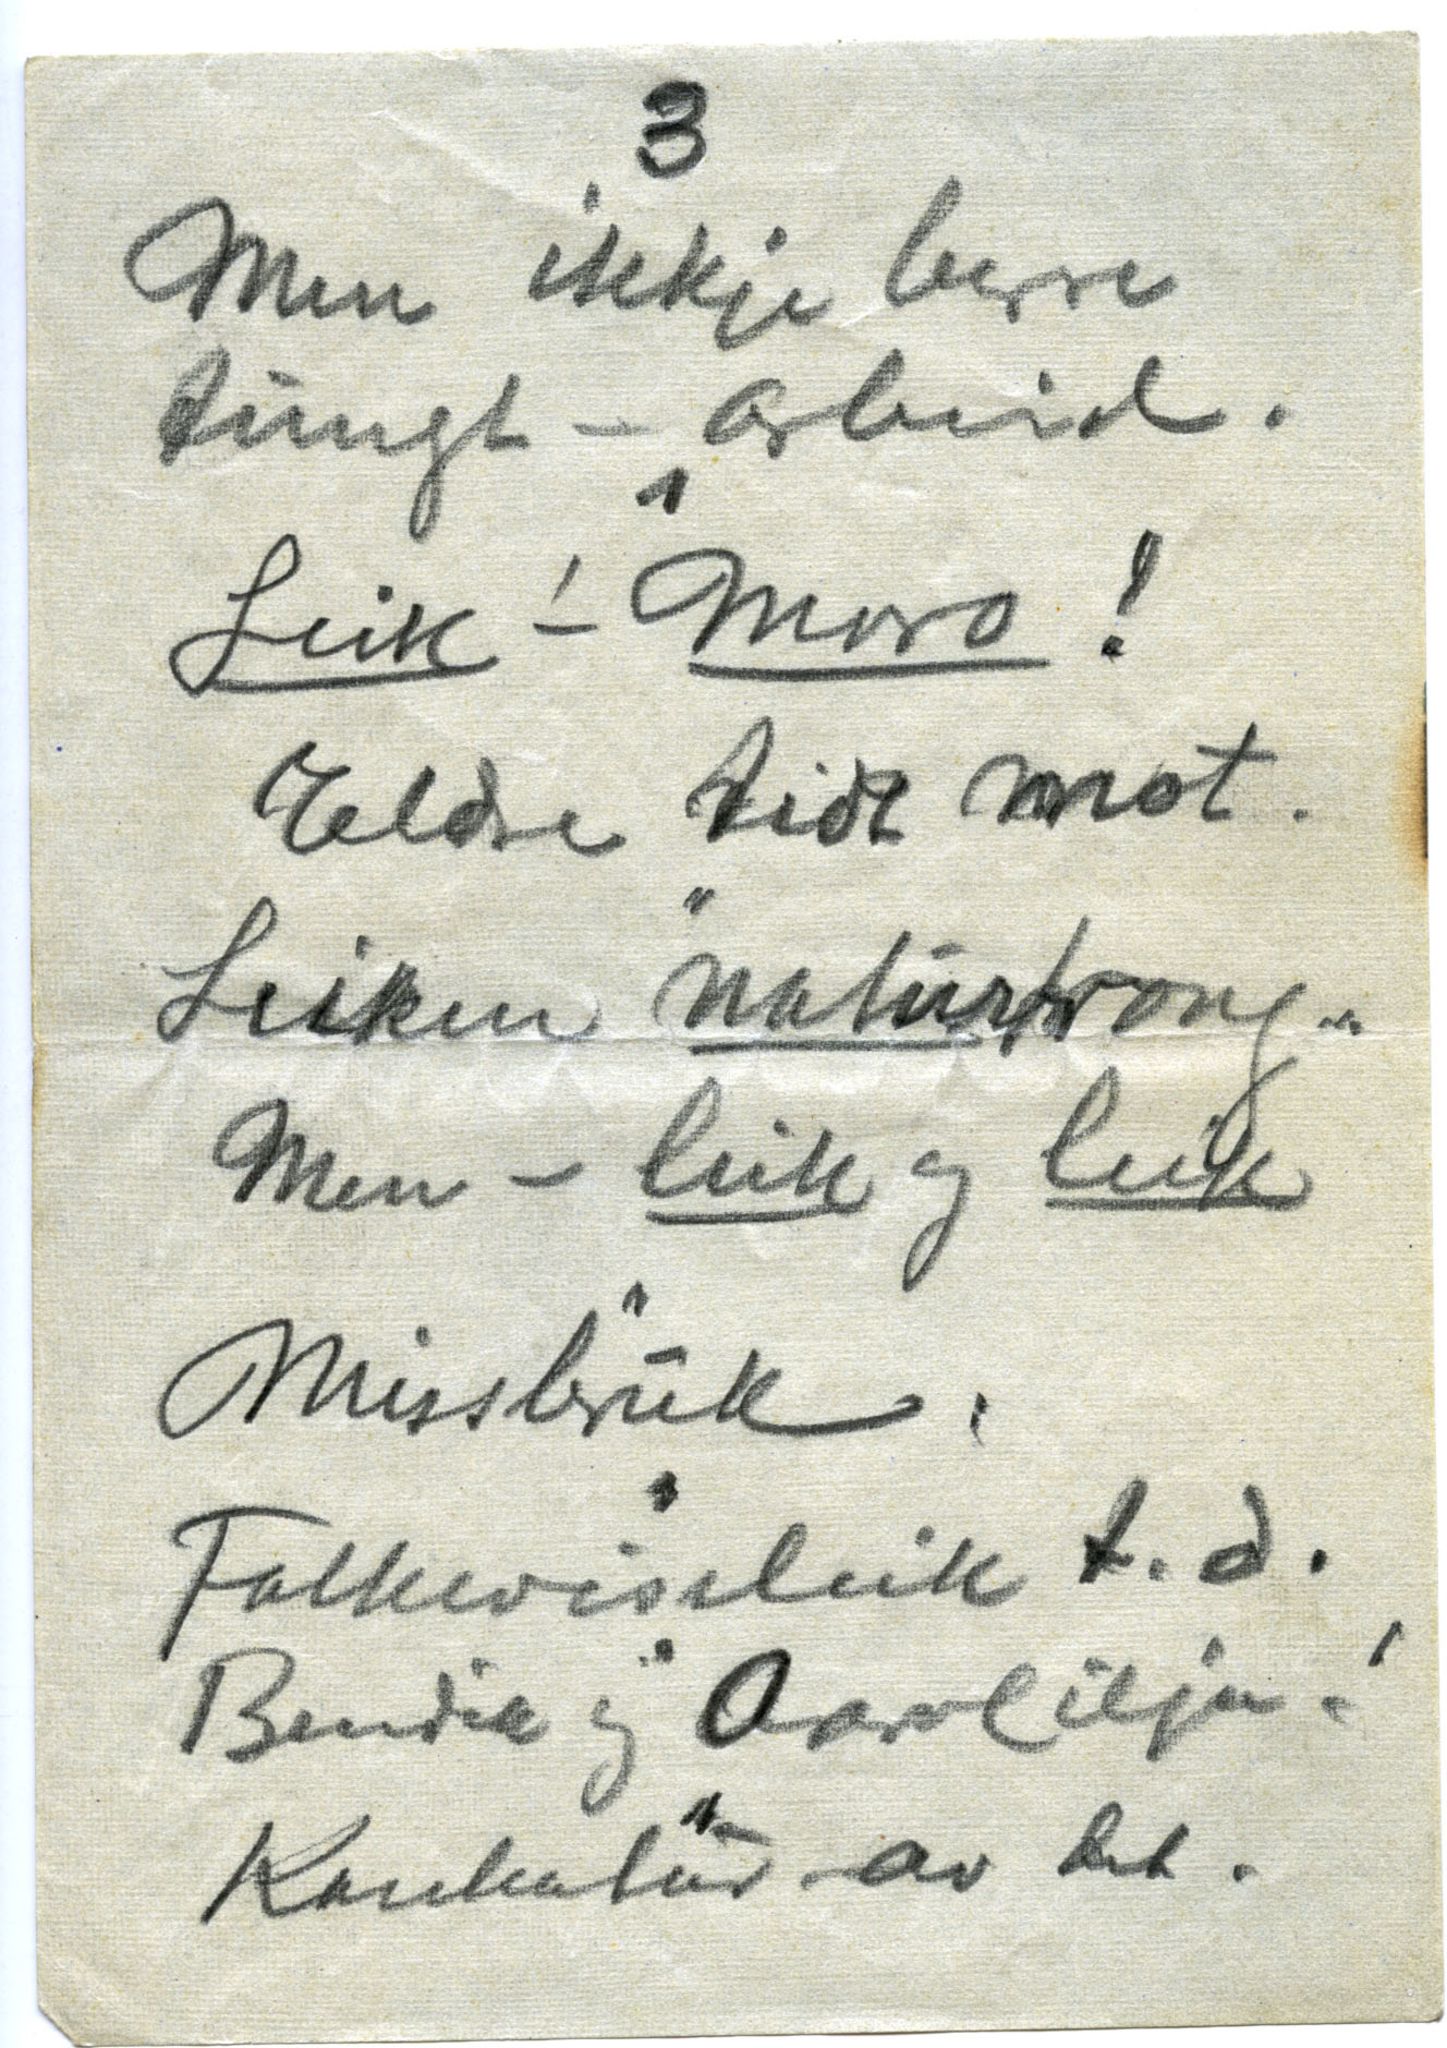 3
Men ikkje berre
tungt – arbeid.
Leik – Moro!
Eldre tidt mot.
Leiken naturtrong..
Men – leik og leik
Missbruk.
Folkeviseleik t.d.
Bendik og Aarolilja!
Karikatur av det.